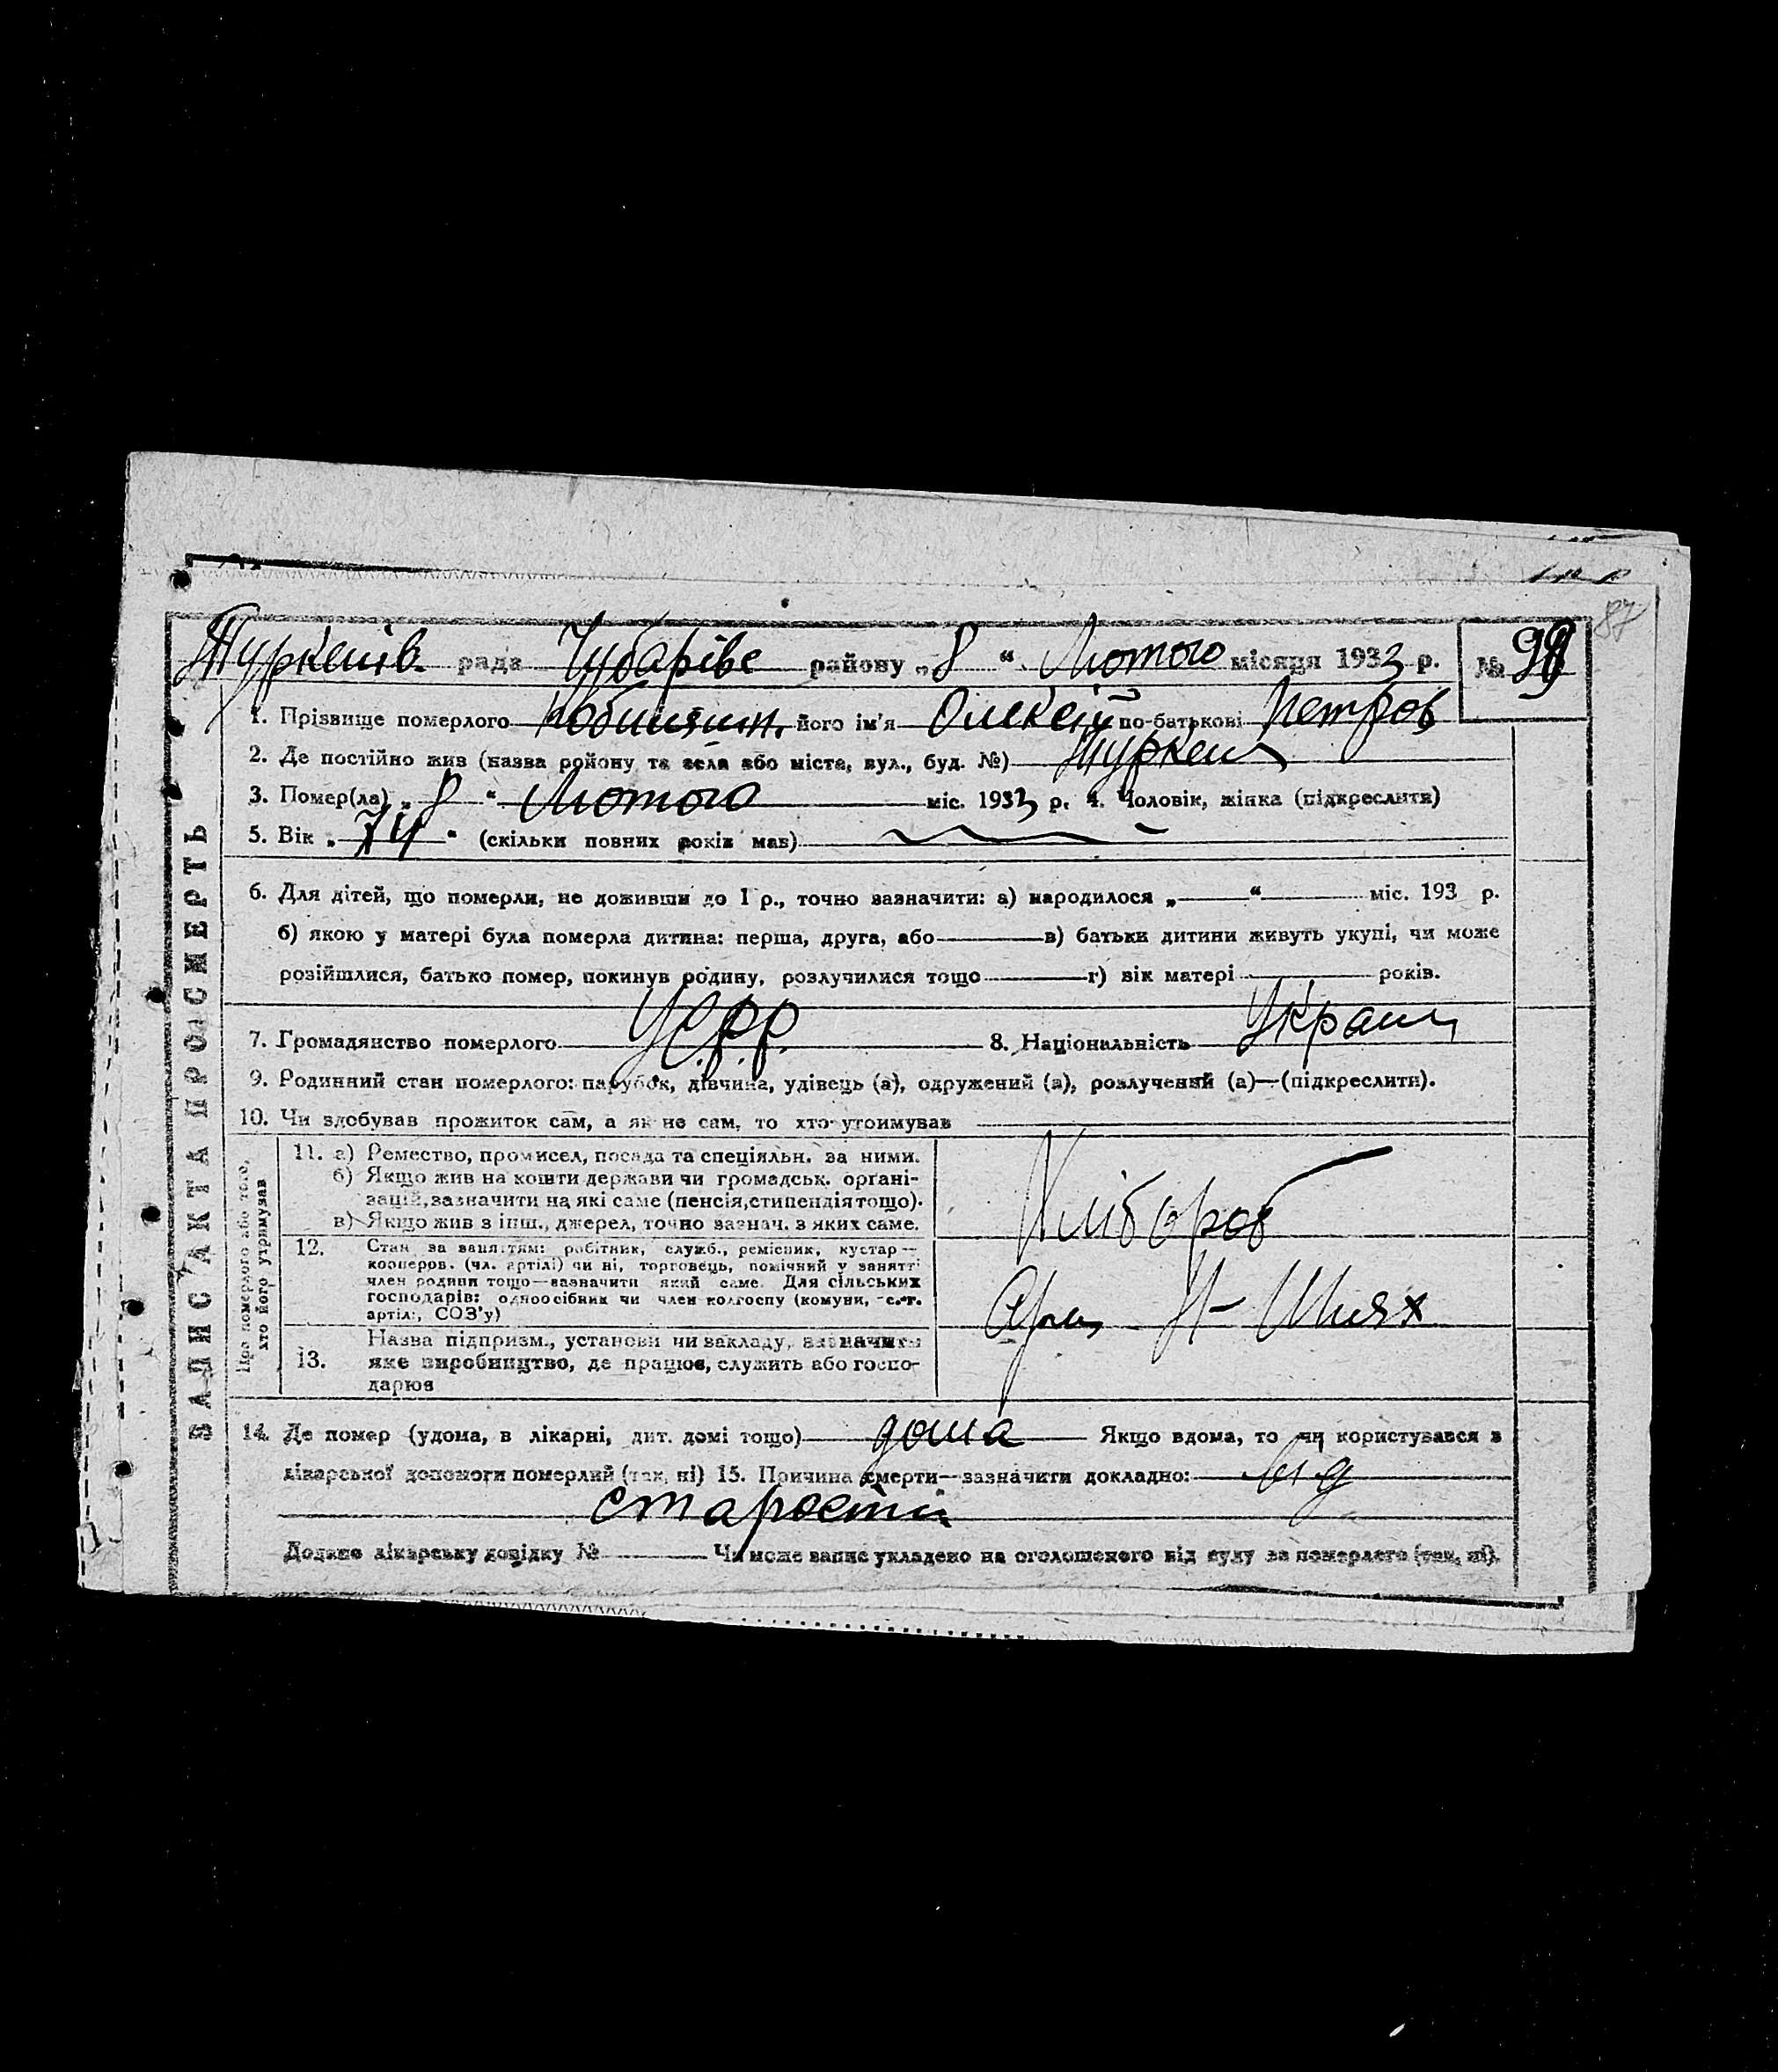 87
Туркенів. рада Чубарівс району „8“ Лютого місяця 1933 р. № 99
1. Прізвище померлого його ім'я Олексій по-батькові Петров
2. Де постійно жив (назва району та села або міста, вул., буд. №) Туркен
3. Помер(ла) „8“ Лютого міс. 1933 р. 4. Чоловік, жінка (підкреслити)
5. Вік „74“ (скільки повних років мав)
6. Для дітей, що померли, не доживши до 1 р., точно зазначити: а) народилося „ “ міс. 193 р.
б) якою у матері була померла дитина: перша, друга, або в) батьки дитини живуть укупі, чи може
розійшлися, батько помер, покинув родину, розлучилися тощо г) вік матері років.
7. Громадянство померлого УСРР 8. Національність Украин
9. Родинний стан померлого: парубок, дівчина, удівець (а), одружений (а), розлучений (а)—(підкреслити).
10. Чи здобував прожиток сам, а як не сам, то хто утримував
ЗАПИС АКТА ПРО СМЕРТЬ
Про померлого або того, хто його утримував
11. а) Ремество, промисел, посада та спеціяльн. за ними.
б) Якщо жив на кошти держави чи громадськ. органі-
зацій, зазначити на які саме (пенсія, стипендія тощо).
в) Якщо жив з інш., джерел, точно зазнач. з яких саме.
Хлібороб
12. Стан за заняттям: робітник, служб., ремісник, кустар—
кооперов. (чл. артілі) чи ні, торговець, помічний у занятті
член родини тощо—зазначити який саме. Для сільських
господарів: одноосібник чи член колгоспу (комуни, с.-г.
артілі, СОЗ'у)
Н-Шлях
13. Назва підпризм., установи чи закладу, зазначити
яке виробництво, де працює, служить або госпо-
дарює
14. Де помер (удома, в лікарні, дит. домі тощо) дома Якщо вдома, то чи користувався з
лікарської допомоги померлий (так, ні) 15. Причина смерти—зазначити докладно: від
старости
Додано лікарську довідку № Чи може запис укладено на оголошеного від суду за померлого (так, ні).